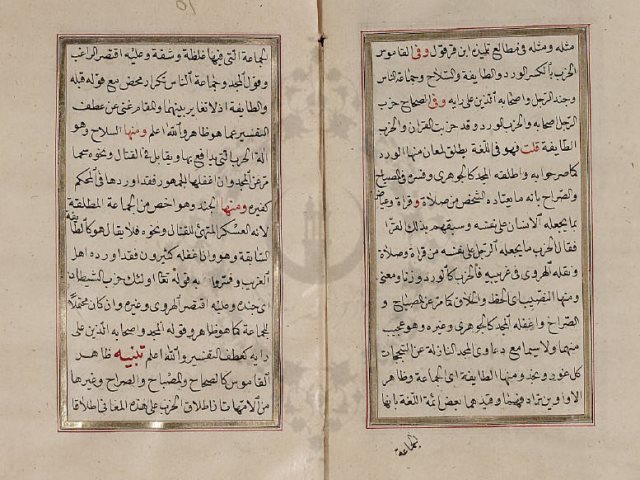 مثله ومثله في مطالع تلميذه ابن قرقول وفي القاموس
الحزب بالكسر الورد والطايفة والسلاح وجماعة الناس
وجند الرجل واصحابه الذين على رايه وفي الصحاح حزب
الرجل اصحابه والحزب الورد وقد حزبت القران والحزب
الطايفة قلت فهو في اللغة يطلق لمعان منها الورد
كما صرحوا به واطلقه المجد كالجوهري وفسره في المصباح
والصراح بانه ما يعتاده الشخص من صلاة وقراءة وعياض
بما يجعله الانسان على نفسه وسبقهم بذلك الفرا
فقال الحزب ما يجعله الرجل على نفسه من قراءة وصلاة
ونقله الهروي في غريبه فالحزب كالورد وزنا ومعنى
ومنها النصيب اي الحظ والطلاق كما مر عن المصباح و
الصراح واغفله المجد كالجوهري وغيره وهو عجيب
منهما ولا سيما مع دعاوى المجد النازلة عن التيجان
كل عود ونجد ومنها الطايفة اي الجماعة وظاهر
الاولين ترادفهما وقيدهما بعض ائمة اللغة بانها
الجماعة
الجماعة التي فيها غلظة وشقة وعليه اقتصر الراغب
وقول المجد وجماعة الناس تكرار محض مع قوله قبله
والطايفة اذ لا تغاير بينهما والمقام غني عن عطف
التفسير بما هو ظاهر والله اعلم ومنها السلاح وهو
الة الحرب التي يدافع بها ويقابل في القتال ونحوه مما
مر عن المجد وان اغفلها الجمهور فقد اوردها في المحكم
كغيره ومنها الجند وهو اخص من الجماعة المطلقة
لانه العسكر المتهيئ للقتال ونحوه فلا يقال هو كالطايفة
السابقة وهو وان اغفله كثيرون فقد اورده اهل
الغريب وفسروا به قوله تعالى اولئك حزب الشيطان
اي جنده وعليه اقتصر الهروي وغيره وان كان محتملا
للجماعة كما هو ظاهر وقوله المجد واصحابه الذين على
رايه كعطف التفسير والله اعلم تنبيه ظاهر
القاموس كالصحاح والمصباح والصراح وغيرها
من الامهات ان اطلاق الحزب على هذه المعاني اطلاقا